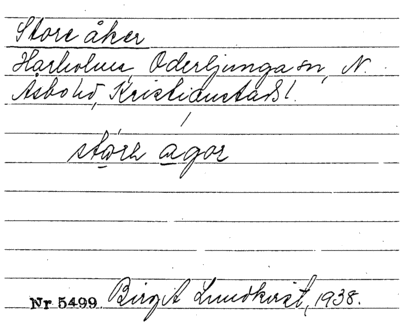 Store åker
Harholma, Oderljunga sn, N.
Åsbo hd, Kristianstads l.
störe agor
Nr 5499 Birgit Lundkvist, 1938.